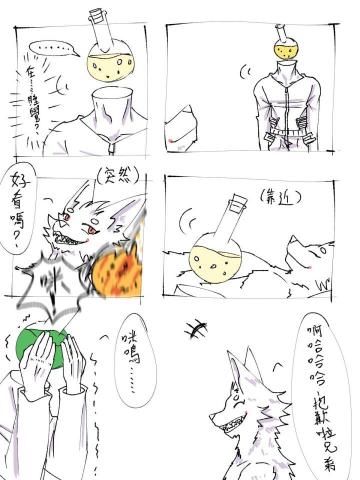 在……睡覺？
(靠近)
(突然)
好看嗎？
咪嗚……
啊哈哈哈哈
抱歉啦兄弟